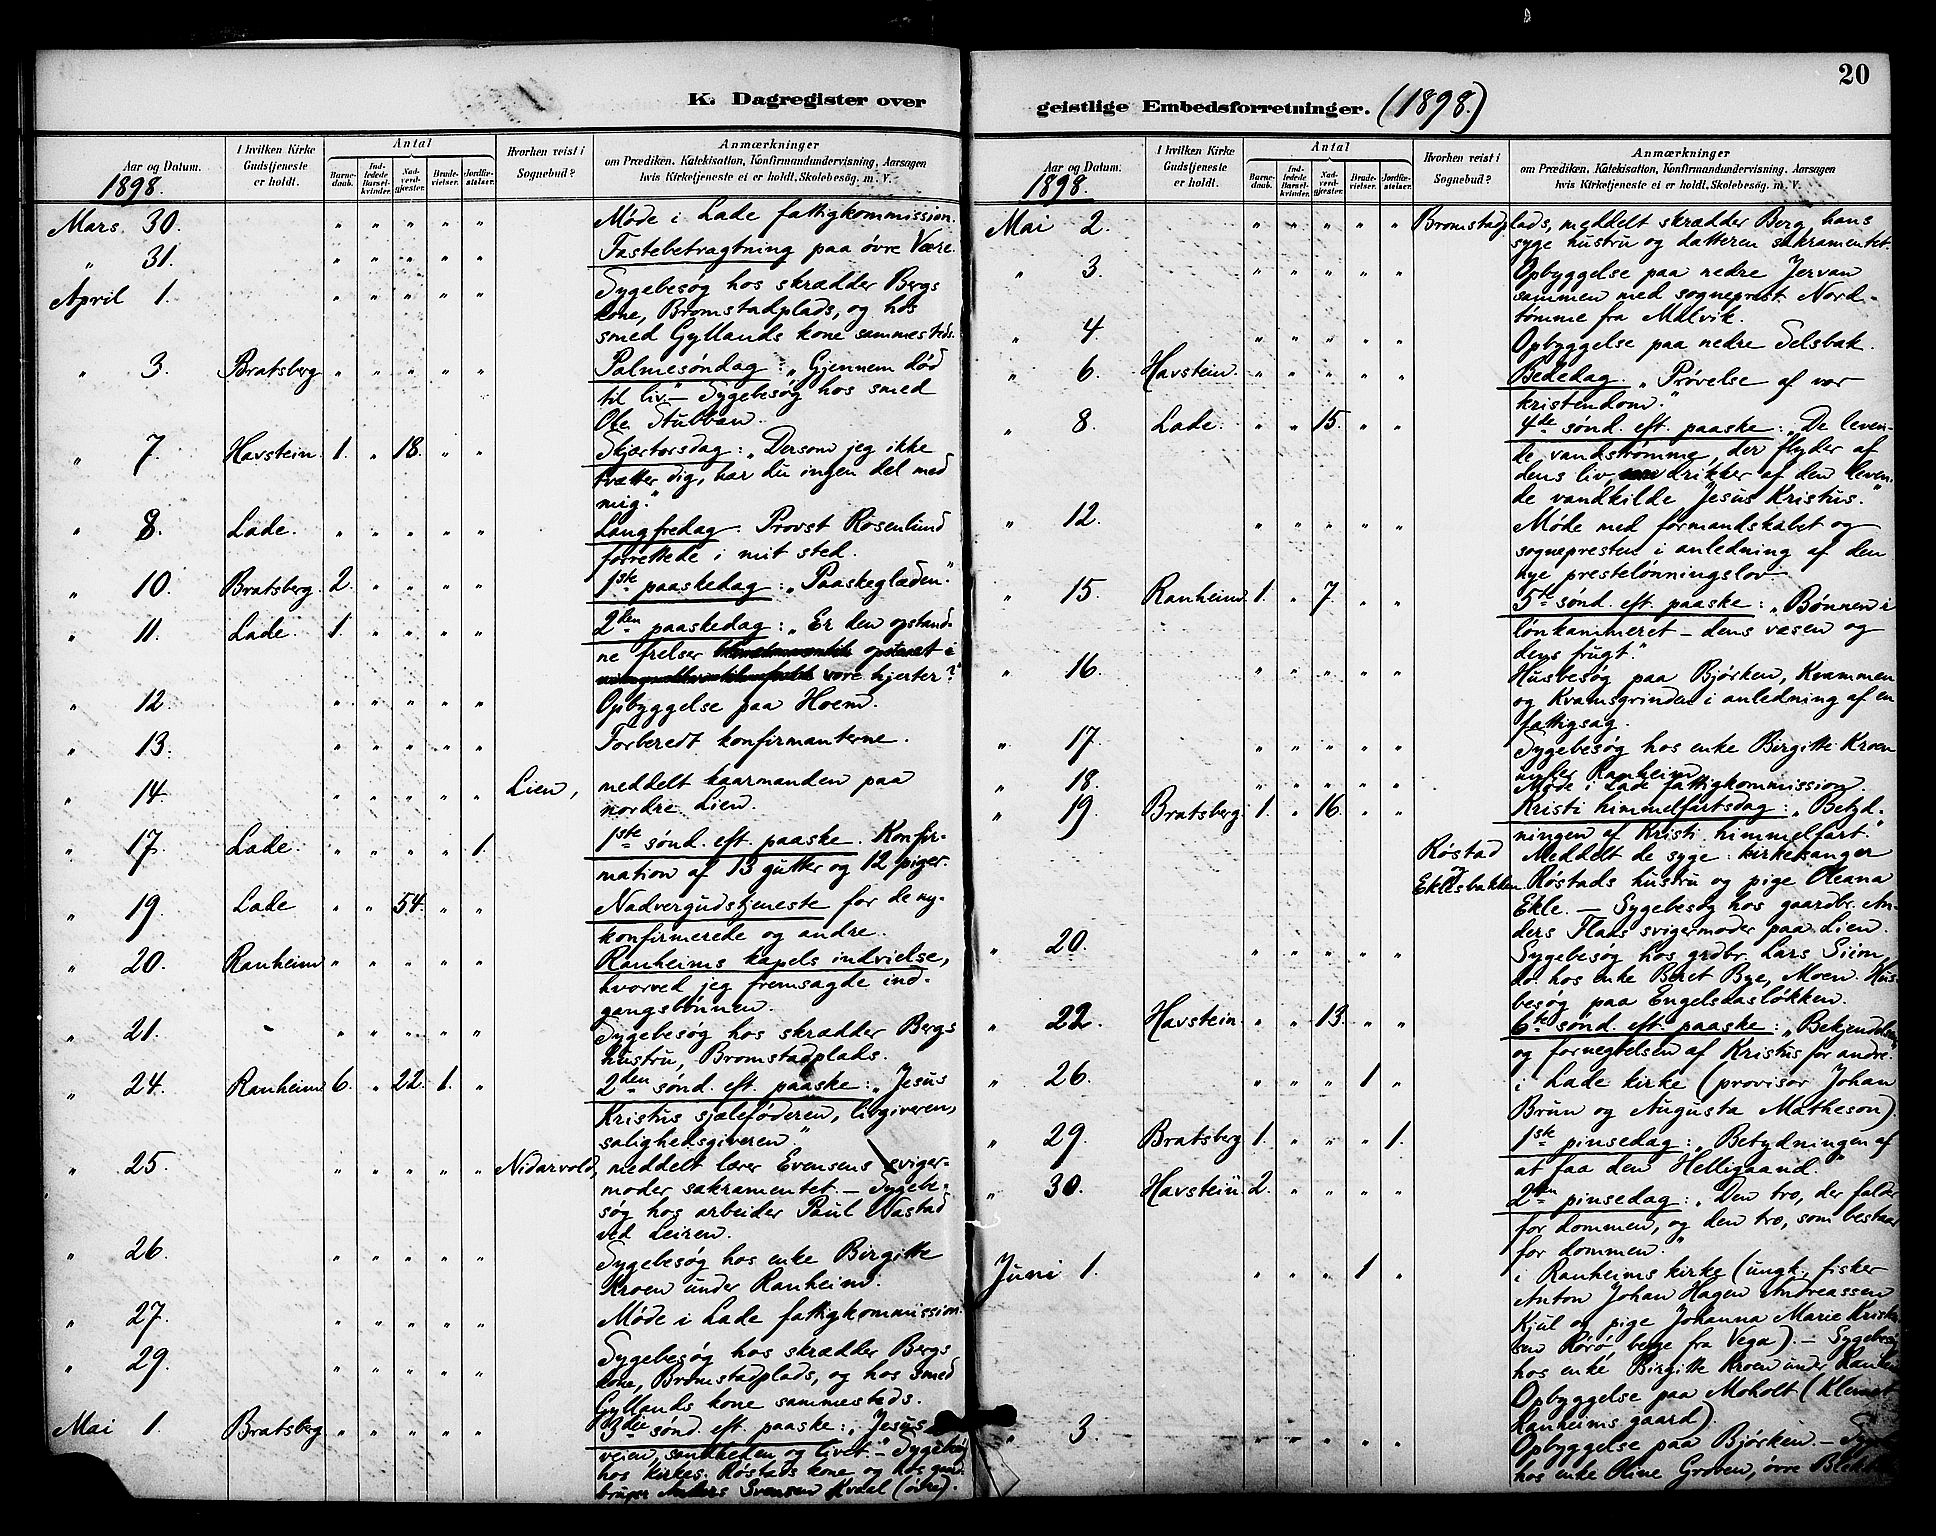 K. Dagregister over
Aar og Datum.
1898.
I hvilken Kirke Gudstjeneste er holdt.
Antal
Barnedaab.
Indledede Barselkvinder.
Nadverdgjæster.
Brudevielser.
Jordfæstelser.
Hvorhen reist i Sognebud?
Anmærkninger
om Prædiken, Katekisation, Konfirmandundervisning, Aarsagen
hvis Kirketjeneste ei er holdt, Skolebesøg. m. V.
Mars 30. " " " " " Møde i Lade fattigkommission.
" 31. " " " " " Fastebetragtning paa øvre Være.
April 1. " " " " " Sygebesøg hos skrædder Bergs
kone, Bromstadplads, og hos
smed Gyllands kone sammesteds.
" 3. Bratsberg " " " " " Palmesøndag: "Gjennem død
til liv" – Sygebesøg hos smed
Ole Stubban.
" 7. Havstein. 1. " 18. " " Skjærtorsdag: "Dersom jeg ikke
tvætter dig, har du ingen del med
mig."
" 8. Lade. " " " " " Langfredag. Provst Rosenlund
forrettede i mit sted.
" 10. Bratsberg. 2. " " " " 1ste paaskedag: "Paaskeglæden."
" 11. Lade. 1. " " " " 2den paaskedag: "Er den opstand-
ne frelser opstanet i
vore hjerter?"
" 12. " " " " " Opbyggelse paa Hoem.
" 13. " " " " " Forberedt konfirmanterne.
" 14. " " " " " Lien, meddelt kaarmanden paa
nordre Lien.
" 17. Lade. " " " " 1. 1ste sønd. eft. paaske. Konfir-
mation af 13 gutter og 12 piger.
" 19. Lade " " 54. " " Nadvergudstjeneste for de ny-
konfirmerede og andre.
" 20. Ranheim " " " " " Ranheims kapels indvielse,
hvorved jeg fremsagde ind-
gangsbønnen.
" 21. " " " " " Sygebesøg hos skrædder Bergs
hustru, Bromstadplads.
" 24. Ranheim 6. " 22. 1. " 2den sønd. eft. paaske: "Jesus
Kristus sjæleføderen, livgiveren,
salighedsgiveren."
" 25. " " " " " Nidarvold, meddelt lærer Evensens sviger-
moder sakramentet. – Sygebe-
søg hos arbeider Paul Nastad
ved Leiren.
" 26. " " " " " Sygebesøg hos enke Birgitte
Kroen under Ranheim.
" 27. " " " " " Møde i Lade fattigkommission.
" 29. " " " " " Sygebesøg hos skrædder Bergs
kone, Bromstadplads, og hos smed
Gyllands kone sammesteds.
Mai 1. Bratsberg " " " " " 3die sønd. eft. paaske: "Jesus
veien, sandheden og livet." – Sygebesøg
hos kirkes. Røstads kone og hos gaard-
bruger Anders Svensen Kvaal (øvre).
20
geistlige Embedsforretninger. (1898.)
Aar og Datum.
1898.
I hvilken Kirke Gudstjeneste er holdt.
Antal
Barnedaab.
Indledede Barselkvinder.
Nadverdgjæster.
Brudevielser.
Jordfæstelser.
Hvorhen reist i Sognebud?
Anmærkninger
om Prædiken, Katekisation, Konfirmandundervisning, Aarsagen
hvis Kirketjeneste ei er holdt, Skolebesøg. m. V.
Mai 2. " " " " " Bromstadplads, meddelt skrædder Berg hans
syge hustru og datteren sakramentet.
" 3. " " " " " Opbyggelse paa nedre Jervan
sammen med sogneprest Nord-
tømme fra Malvik.
" 4. " " " " " Opbyggelse paa nedre Selsbak.
" 6. Havstein. " " " " " Bededag. "Prøvelse af vor
kristendom."
" 8. Lade. " " 15. " " 4de sønd. eft. paaske: "De leven-
de vandstrømme, der flyder af
dens liv, drikker af den leven-
de vandkilde Jesus Kristus."
" 12. " " " " " Møde med formandskabet og
sognepresten i anledning af den
nye prestelønningslov.
" 15. Ranheim 1. " 7. " " 5te sønd. eft. paaske: "Bønnen i
lønkammeret – dens væsen og
dens frugt."
" 16. " " " " " Husbesøg paa Bjørken, Kvammen
og Kvamsgrinden i anledning af en
fattigsag.
" 17. " " " " " Sygebesøg hos enke Birgitte Kroen
under Ranheim
" 18. " " " " " Møde i Lade fattigkommission.
" 19. Bratsberg. 1. " 16. " " Kristi himmelfartsdag: "Betyd-
ningen af Kristi himmelfart."
Røstad og Eklesbakken Meddelt de syge: kirkesanger
Røstads hustru og pige Oleana
Ekle. – Sygebesøg hos gaardbr. An-
ders Flaas svigermoder paa Lien.
" 20. " " " " " Sygebesøg hos grdbr. Lars Siem,
do. hos enke Beret Bye, Moen. Hus-
besøg paa Engelsaasløkken.
" 22. Havstein. " " 13. " " 6te sønd. eft. paaske: "Bekjendelsen
og fornegtelsen af Kristus for andre."
" 26. " " " 1 " i Lade kirke (provisor Johan
Brun og Augusta Matheson).
" 29. Bratsberg 1. " " " 1. 1ste pinsedag: "Betydningen af
at faa den Helligaand."
" 30. Havstein 2. " " " " 2den pinsedag: "Den tro, der falder
for dommen, og den tro, som bestaar
for dommen."
Juni 1. " " " 1 " i Ranheims kirke (ungk. fisker
Anton Johan Hagen Andreassen
Kjul og pige Johanna Marie Kristian
sen Rørø, begge fra Vega). – Sygebesøg
hos enke Birgitte Kroen under Ranheim
Opbyggelse paa Moholt (Klemet
Ranheims gaard).
" 3. " " " " " Opbyggelse paa Bjørken. –
hos enke Oline Groven, øvre